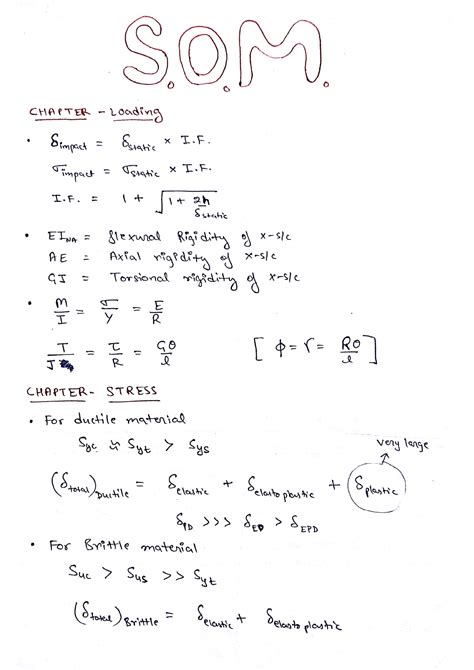 S.O.M.
CHAPTER - Loading
• δimpact = δstatic × I.F.
σimpact = σstatic × I.F.
I.F. = 1 + √(1 + 2h/δstatic)
• EINA = flexural Rigidity of x-s/c
AE = Axial rigidity of x-s/c
GJ = Torsional rigidity of x-s/c
• M/I = σ/Y = E/R
T/J = τ/R = Gθ/l [ϕ = r = Rθ/l]
CHAPTER - STRESS
• For ductile material
Syc ≈ Syt > Sys
very large
(δtotal)Ductile = δelastic + δelasto plastic + δplastic
δPD >>> δED > δEPD
• For Brittle material
Suc > Sus >> Syt
(δtotal)Brittle = δelastic + δelasto plastic